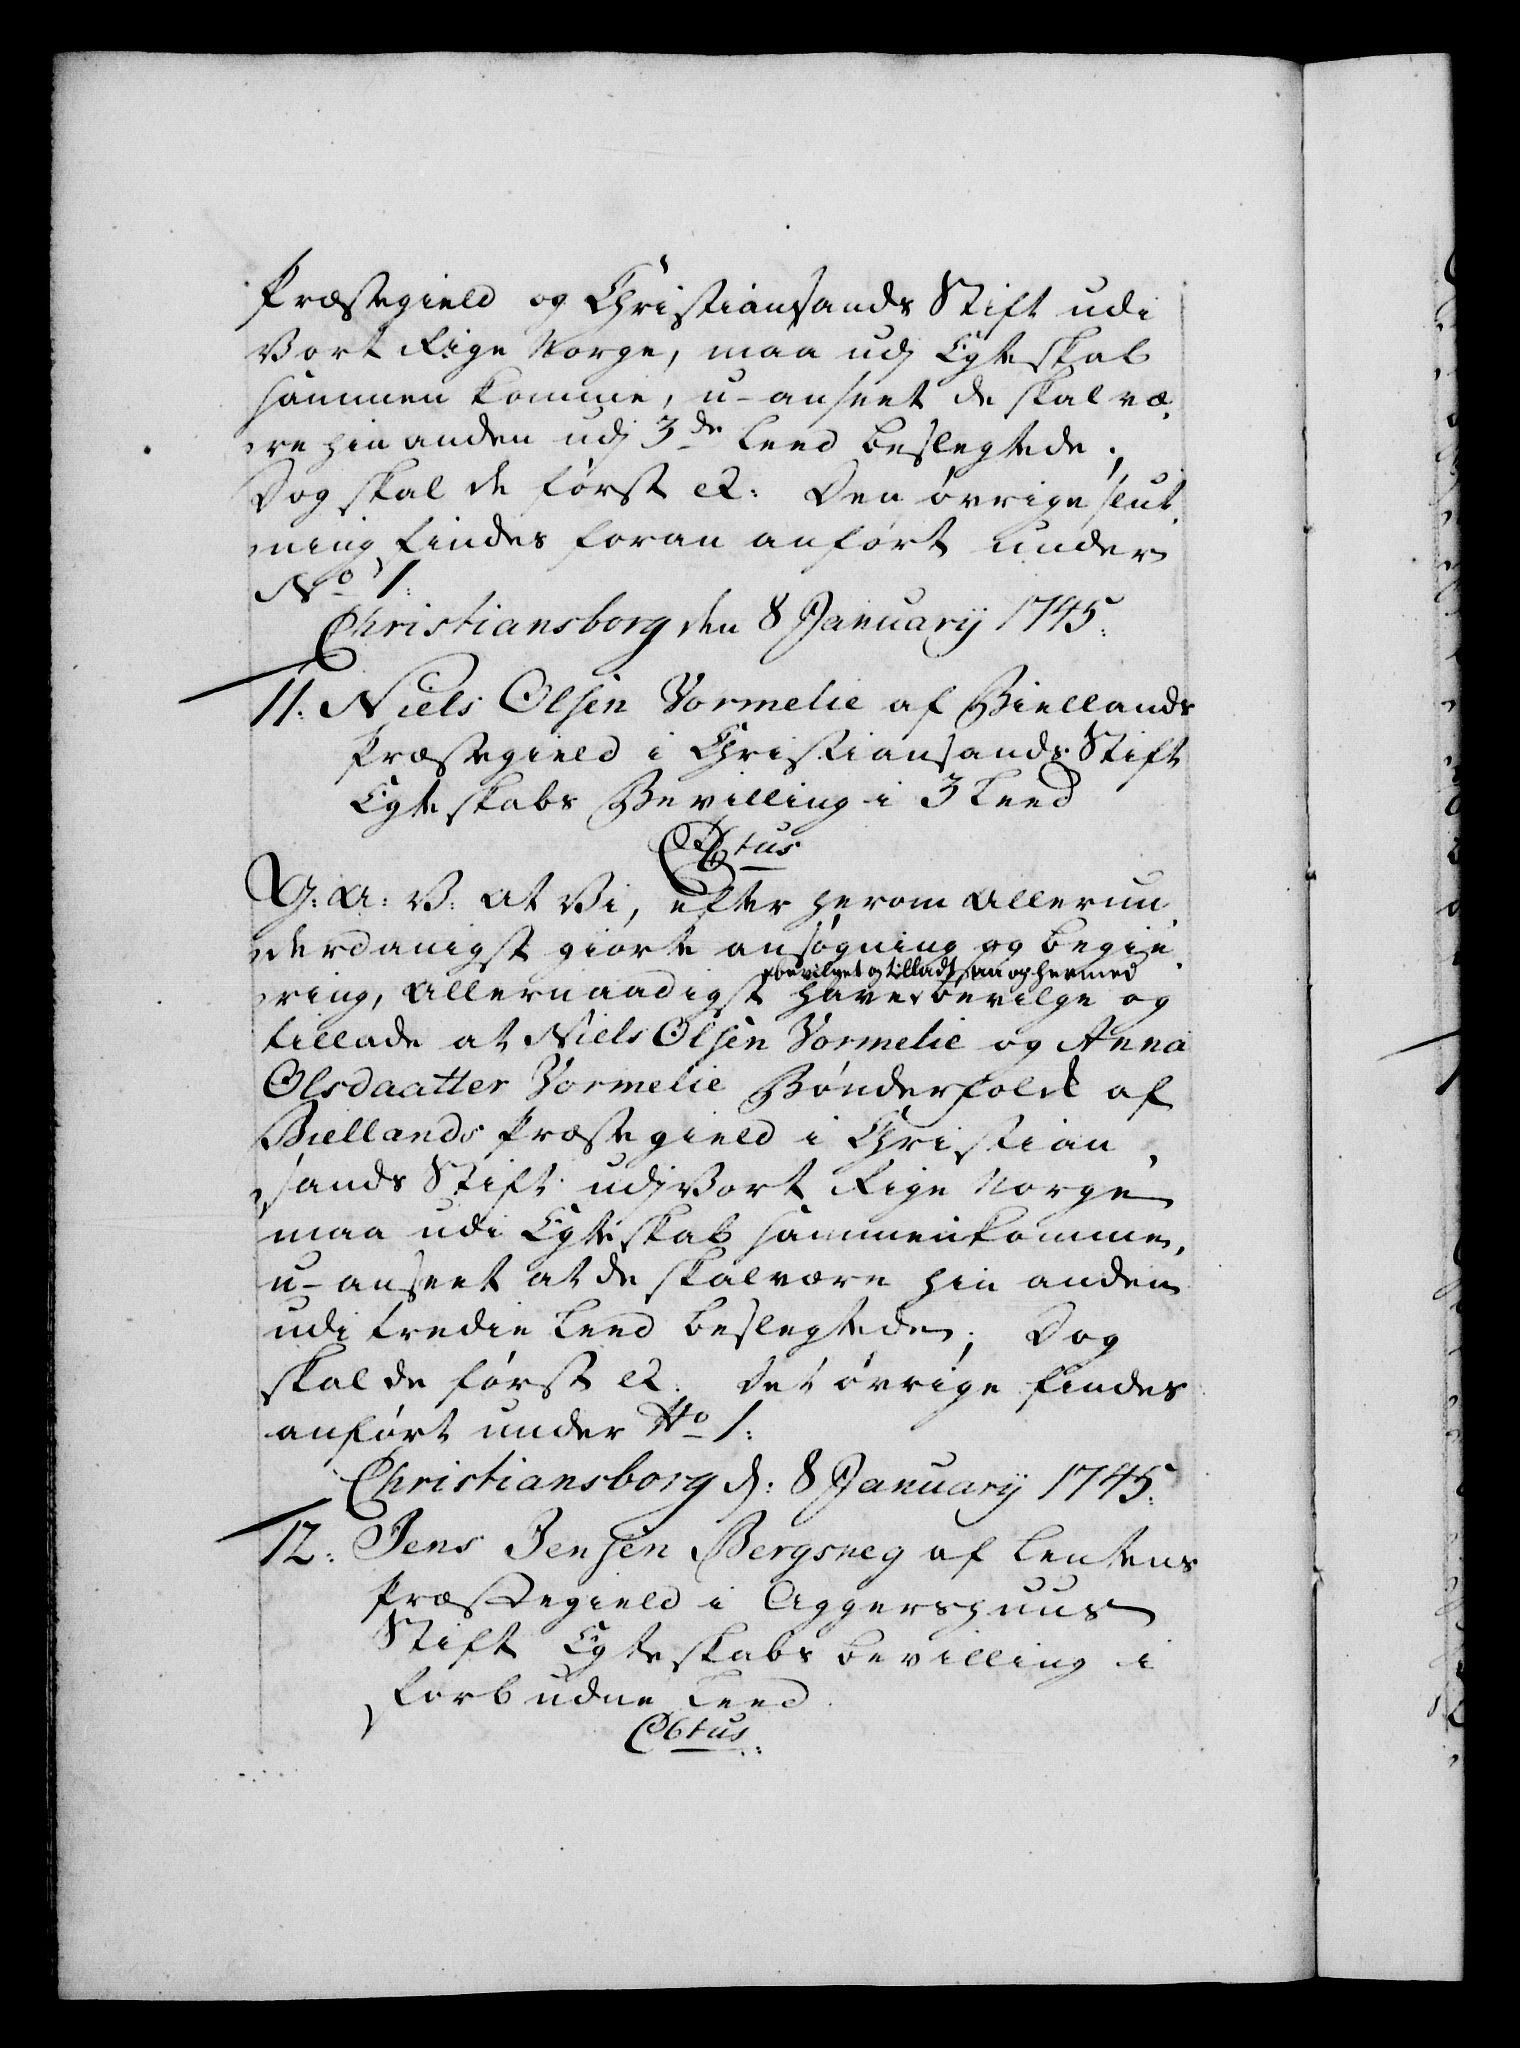 Præstegield og Christiansands Stift udi
Vort Rige Norge, maa udj Egteskab
sammen komme, u-anseet de skal væ-
re hinanden udj 3de Leed beslegtede;
Dog skal de først &c: Den øvrige slut-
ning findes foran anført under
No 1:
Christiansborg den 8 Januarij 1745:
11: Niels Olsen Vormelie af Biellands
Præstegield i Christiansands Stift
Egteskabs Bevilling i 3 Leed
Obtus
G: A: V: at Vi, efter herom allerun-
derdanigst giorte ansøgning og begiæ-
ring, Allernaadigst have bevilge og
bevilget og tilladt, saa og hermed
tillade at Niels Olsen Vormelie og Anna
Olsdaatter Vormelie Bønderfolck af
Biellands Præstegield i Christian-
sands Stift udj Vort Rige Norge
maa udi Egteskab sammenkomme,
u-anseet at de skal være hin anden
udi tredie Leed beslegtede; Dog
skal de først &c. Det øvrige findes
anført under No 1:
Christiansborg d: 8 Januarij 1745:
12: Jens Jensen Bergsneg af Leutens
Præstegield i Aggershuus
Stift Egteskabs bevilling i
forbudne Leed
Obtus